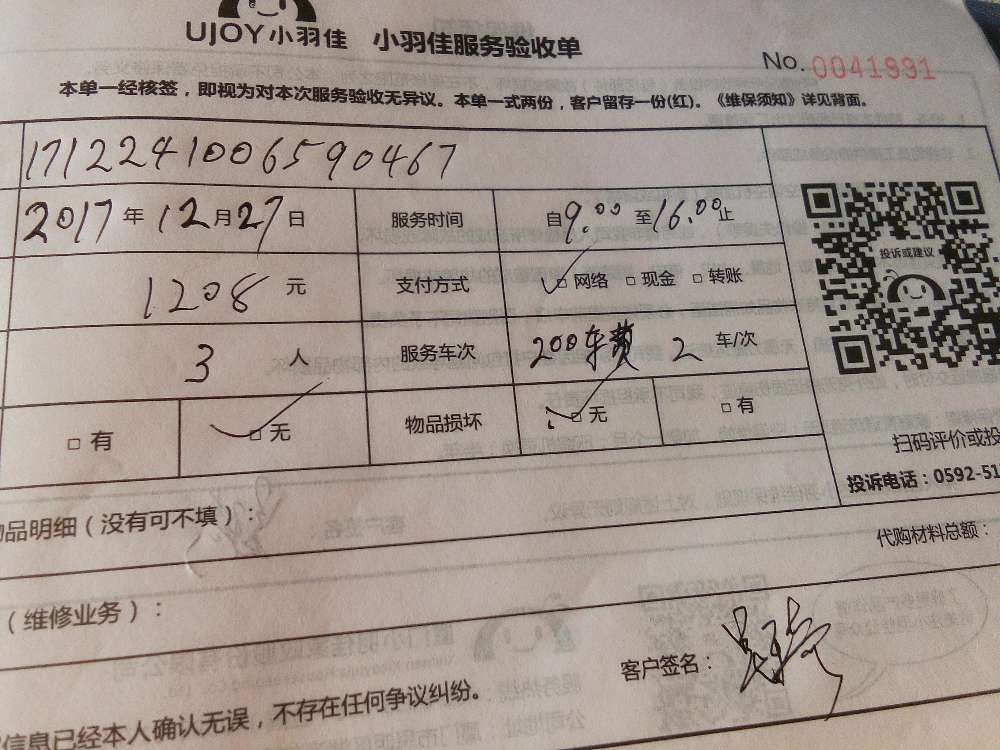 UJOY小羽佳 小羽佳服务验收单
No. 0041991
本单一经核签，即视为对本次服务验收无异议。本单一式两份，客户留存一份(红)。《维保须知》详见背面。
1712241006590467
2017年12月27日 服务时间 自9:00至16:00止
1208元 支付方式 □网络 □现金 □转账
投诉或建议
3人 服务车次 200车费 2 车/次
□有 □无 物品损坏 □无 □有
扫码评价或投
投诉电话：0592-51
品明细（没有可不填）：
代购材料总额：
（维修业务）：
客户签名：
信息已经本人确认无误，不存在任何争议纠纷。